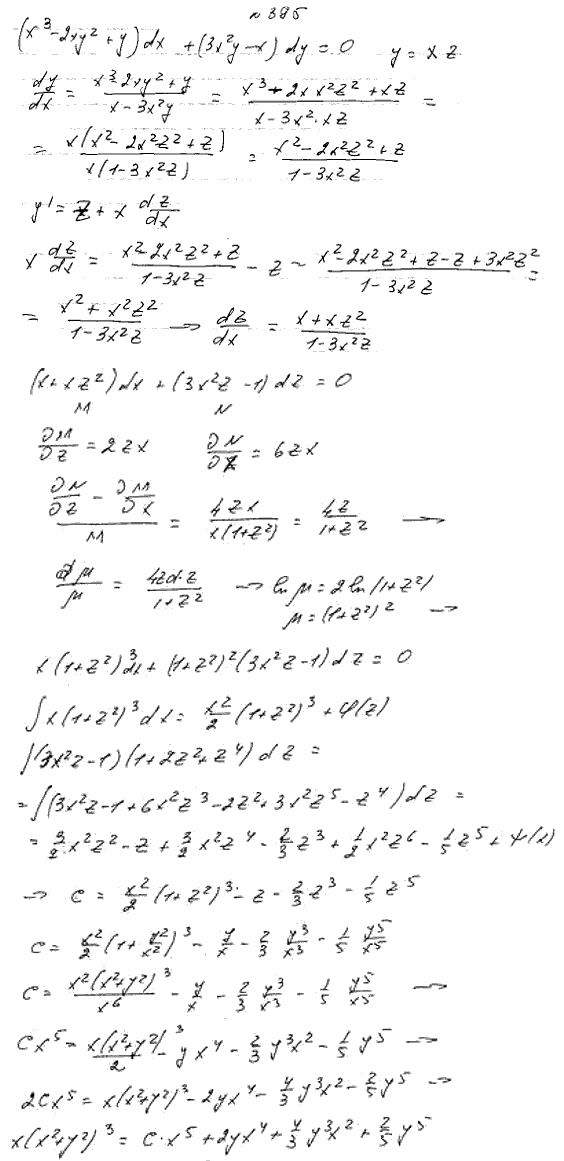 № 385
(x³-2xy²+y)dx + (3x²y-x)dy=0   y=xz
dy/dx = (x³-2xy²+y)/(x-3x²y) = (x³+2x x²z²+xz)/(x-3x²·xz) =
= x(x²-2x²z²+z)/x(1-3x²z) = (x²-2x²z²+z)/(1-3x²z)
y' = z + x dz/dx
x dz/dx = (x²-2x²z²+z)/(1-3x²z) - z ~ (x²-2x²z²+z-z+3x²z²)/(1-3x²z) =
= (x²+x²z²)/(1-3x²z) → dz/dx = (x+xz²)/(1-3x²z)
(x+xz²)dx + (3x²z-1)dz = 0
M   N
∂M/∂z = 2zx   ∂N/∂x = 6zx
(∂N/∂z - ∂M/∂x)/M = 4zx/x(1+z²) = 4z/(1+z²) →
dμ/μ = 4zdz/(1+z²) → ln μ = 2ln(1+z²)
μ=(1+z²)² →
x(1+z²)³dx + (1+z²)²(3x²z-1)dz = 0
∫x(1+z²)³dx = x²/2 (1+z²)³ + φ(z)
∫(3x²z-1)(1+2z²+z⁴)dz =
=∫(3x²z-1+6x²z³-2z²+3x²z⁵-z⁴)dz =
= 3/2 x²z² - z + 3/2 x²z⁴ - 2/3 z³ + 1/2 x²z⁶ - 1/5 z⁵ + ψ(x)
→ C = x²/2 (1+z²)³ - z - 2/3 z³ - 1/5 z⁵
C = x²/2 (1+y²/x²)³ - y/x - 2/3 y³/x³ - 1/5 y⁵/x⁵
C = x²(x²+y²)³/x⁶ - y/x - 2/3 y³/x³ - 1/5 y⁵/x⁵ →
Cx⁵ = x(x²+y²)³/2 - yx⁴ - 2/3 y³x² - 1/5 y⁵ →
2Cx⁵ = x(x²+y²)³ - 2yx⁴ - 4/3 y³x² - 2/5 y⁵ →
x(x²+y²)³ = C·x⁵ + 2yx⁴ + 4/3 y³x² + 2/5 y⁵